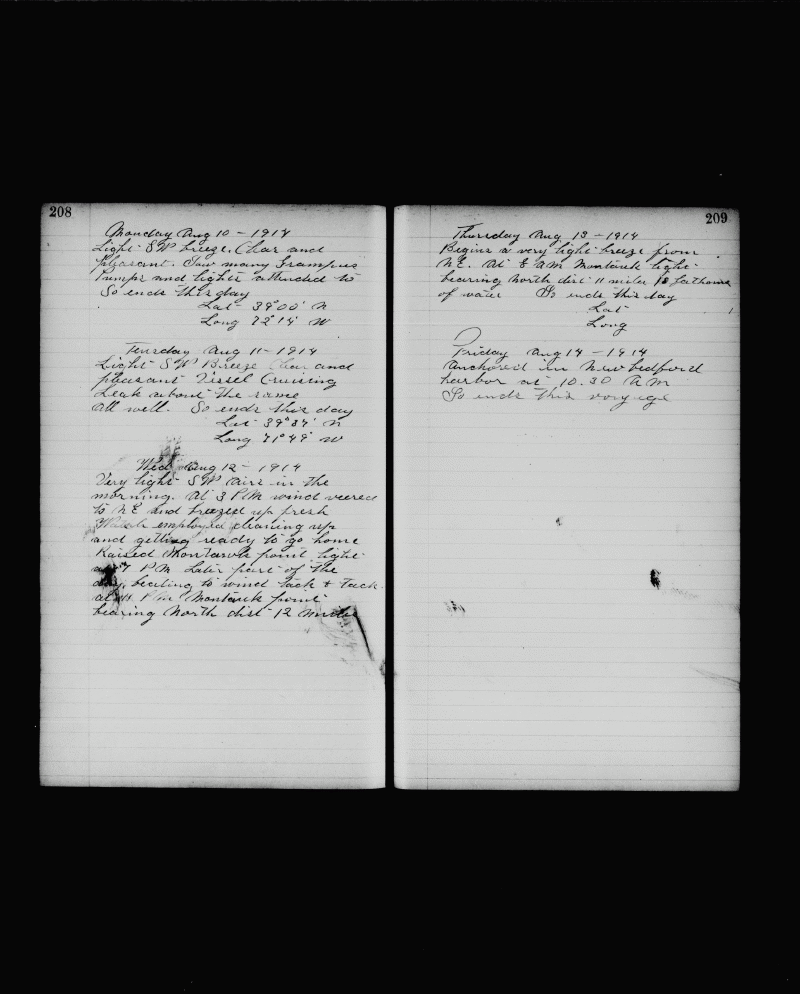 208
Monday Aug 10 - 1914
Light SW breeze. Clear and
pleasant. Saw many Grampus
Pumps and lights attended to
So ends this day
Lat 39° 00' N
Long 72° 14' W
Teusday Aug 11 - 1914
Light SW Breeze Clear and
pleasant Vessel Cruising
Leak about the same
All well. So ends this day
Lat 39° 37' N
Long 71° 49' W
Wed Aug 12 - 1914
Very light SW airs in the
morning. At 3 PM wind veered
to NE and breezed up fresh
employed cleaning up
and getting ready to go home
Raised Montauk point light
at 7 PM Later part of the
day, beating to wind tack & tack
at PM Montauk point
bearing North dist 12 miles
209
Thursday Aug 13 - 1914
Begins a very light breeze from
NE. At AM Montauk light
bearing North dist 11 miles 18 fathoms
of water So ends this day
Lat
Long
Friday Aug 14 - 1914
Anchored in New bedford
harbor at 10.30 AM
So ends this voyage